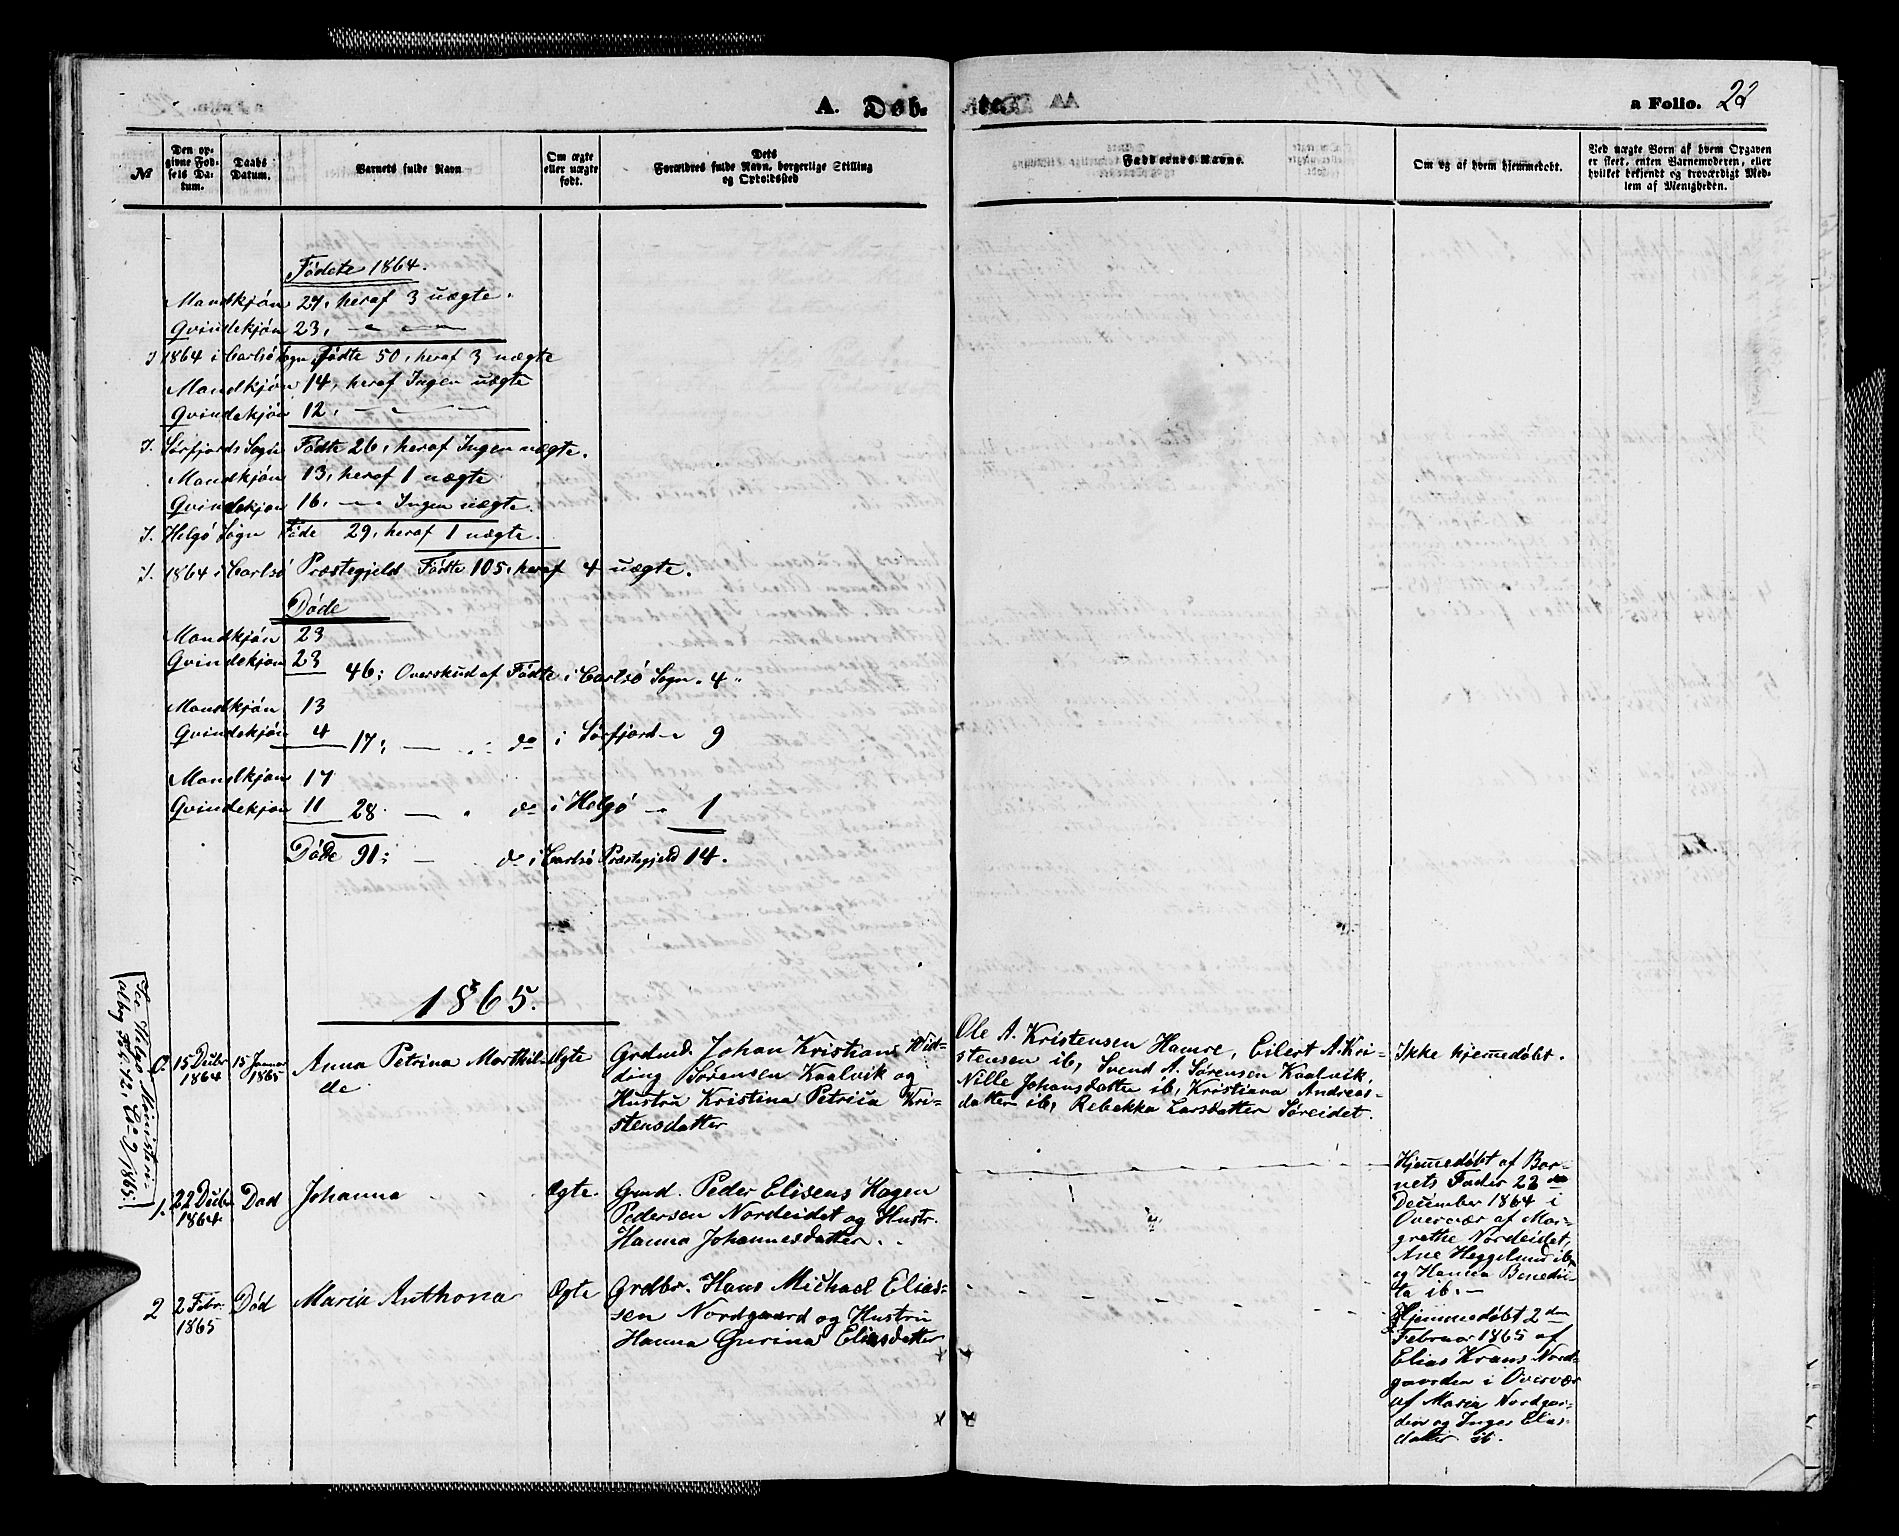 A. Døb- te. a Folio. 22
№
Den op-
givne Fød-
sels Da-
tum.
Daabs
Datum.
Barnets fulde Navn
Om ægte
eller uægte
født.
Dets
Forældres fulde Navn, borgerlige Stilling
og Opholdssted
Faddernes Navne.
Om og af hvem hjemmedøbt.
Ved uægte Børn af hvem Opgaven
er skeet, enten Barnemoderen, eller
hvilket bekjendt og troværdigt Med-
lem af Menigheden.
Fødete 1864.
Mandkjøn 27, heraf 3 uægte.
Qvindekjøn 23, — — —
I 1864 i Carlsö Sogn, Födte 50, heraf 3 uægte
Mandkjøn 14, heraf Ingen uægte
Qvindekjøn 12, — — —
I. Sørfjords Sogn Födte 26, heraf Ingen uægte.
Mandkjøn 13, heraf 1 uægte
Qvindekjøn 16, — Ingen uægte.
I. Helgö Sogn Föde 29, heraf 1 uægte.
I. 1864 i Carlsö Præstegjeld Födte 105, heraf 4 uægte.
Døde
Mandkjøn 23
Qvindekjøn 23
46; Overskud af Födte i Carlsö Sogn. 4 "
Mandkjøn 13
Qvindekjøn 4
17; — " do i Sørfjord — 9
Mandkjøn 17
Qvindekjøn 11
28 — " do i Helgö — 1
Döde 91; — do i Carlsö Præstegjeld 14.
1865.
15 Decbr 1864 15 Januar 1865 Anna Petrina Mathil-
de
Ægte
Grdmd. Johan Kristians Wid-
ding Sørensen Kaalvik og
Hustru Kristina Petrica Kri-
stensdatter
Ole A. Kristensen Hamre, Eilert A. Kri-
stensen ib, Svend A. Sørensen Kaalvik,
Nille Johansdatter ib, Kristiana Andreas-
datter ib, Rebekka Larsdatter Søreidet.
Ikke hjemedöbt.
1. 22 Decbr 1864 Död Johanna
Ægte.
Gmd. Peder Elisens Hagen
Pedersen Nordeidet og Hustr.
Hanna Johannesdatter.
Hjemedöbt af Bar-
nets Fader 22 de
December 1864 i
Overvær af Mar-
grethe Nordeidet,
Ane Heggelund ib
og Hanna Benedic-
ta ib. —
2 2 Febr. 1865 Død Maria Anthona
Ægte
Grdbr. Hans Michael Elias-
sen Nordgaard og Hustru
Hanna Gurina Eliasdatter
Hjemmedøbt 2 den
Februar 1865 af
Elias Krans Nord-
gaarden i Overvær
af Maria Nordgar-
den og Inger Elias-
datter ib.